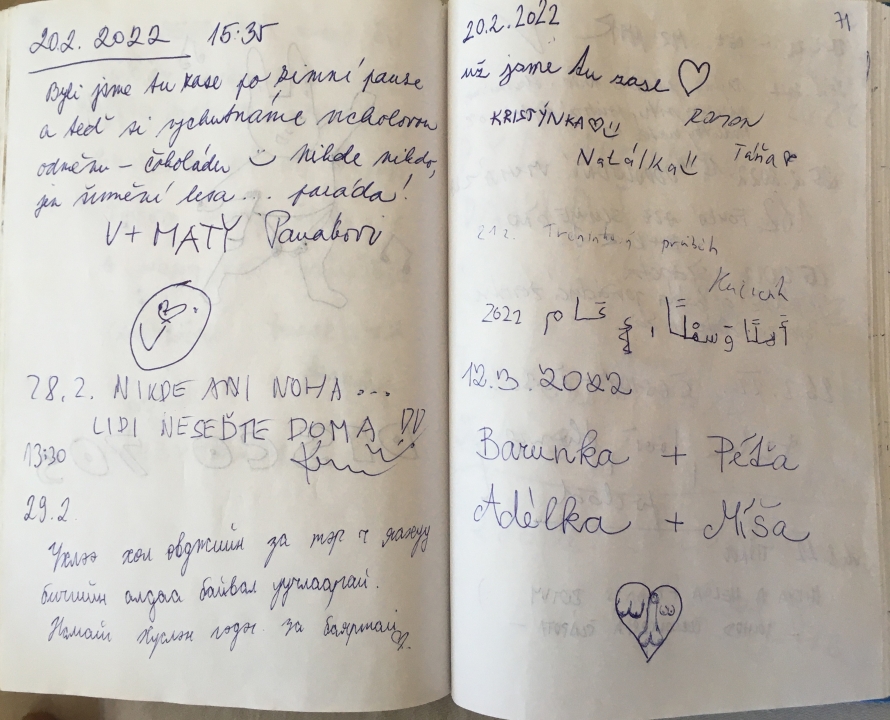 20.2. 2022 15:35
Byli jsme tu zase po zimní pauze
a teď si vychutnáme vrcholovou
odměnu – čokoládu nikde nikdo,
jen šumění lesa... paráda!
V + MATY
28.2. NIKDE ANI NOHA ...
LIDI NESEĎTE DOMA !!!
13:30
29.2
хол за тэр ч
бичгийн алдаа байвал уучлаарай.
Намайг Хүслэн гэдэг. за баяртай
71
20.2.2022
už jsme tu zase
KRISTÝNKA ROMAN
Natálka Táňa
21.2. průběh
أهلًا وسهلًا، عام 2022
12.3.2022
Barunka + Péťa
Adélka + Míša